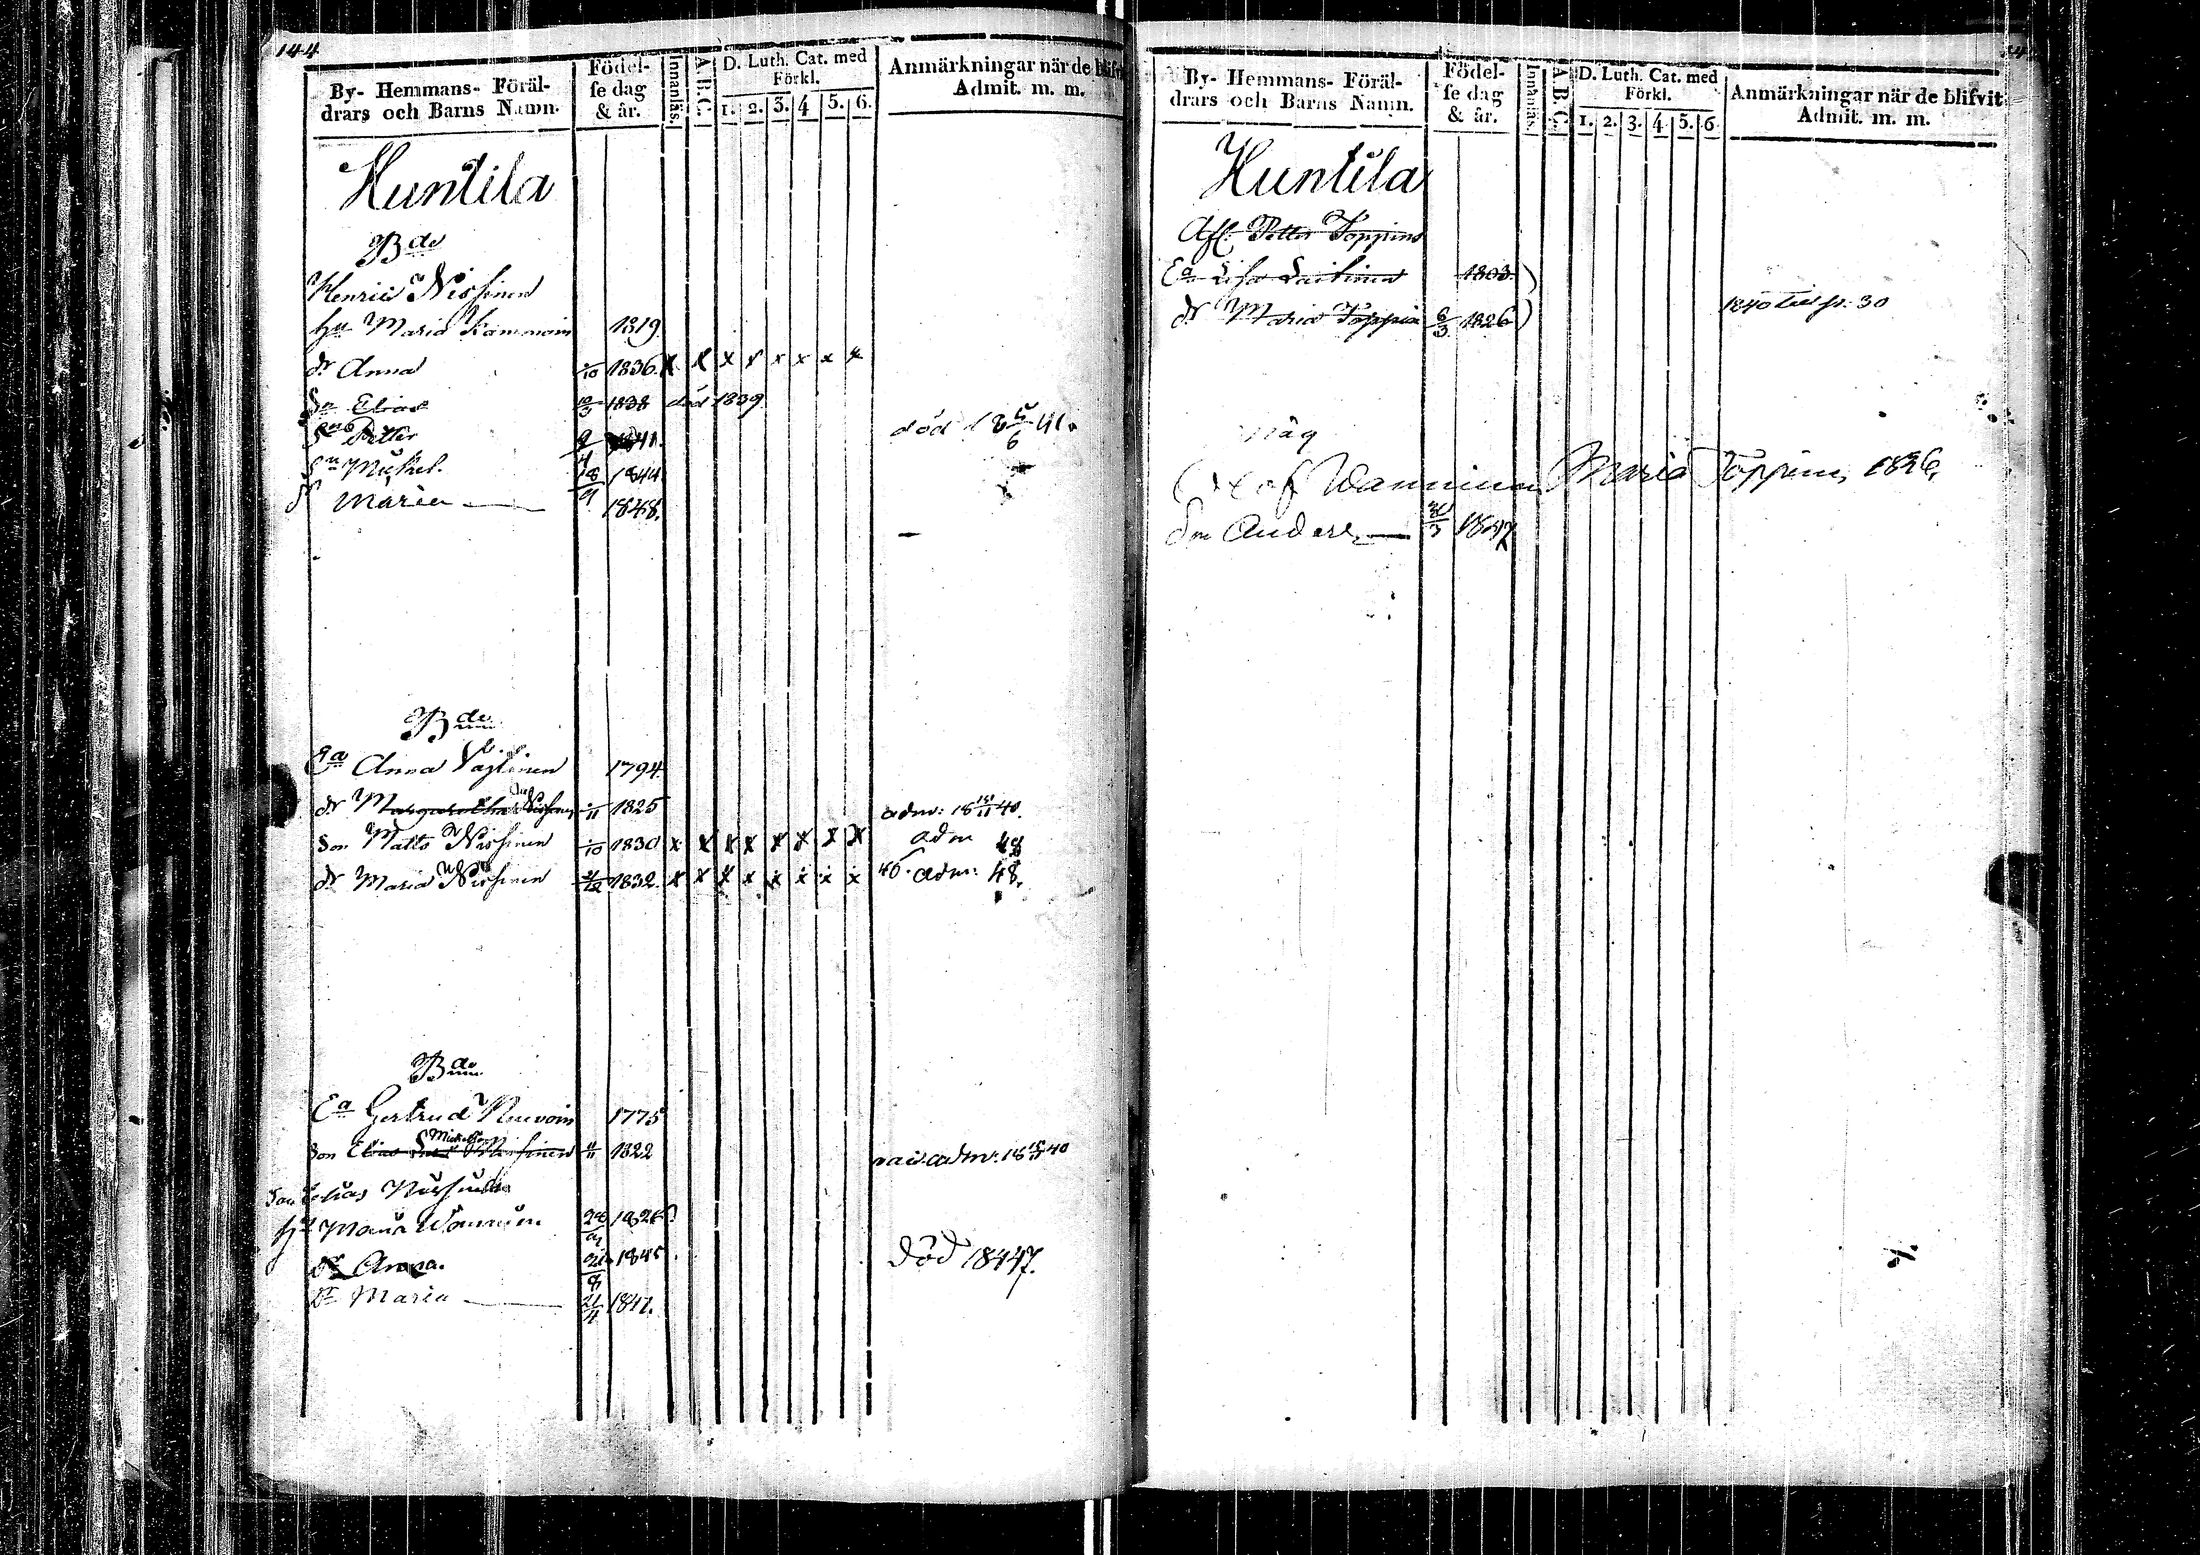 144
By- Hemmans- Föräl-
drars och Barns Namn.
Födel-
se dag
& år.
Innanläs.
A.B.C.
D. Luth. Cat. med
Förkl.
1. 2. 3. 4 5. 6.
Anmärkningar när de blifvit
Admit. m. m.
Huntila
Bde
Henric Nissinen
hu Maria 1819.
dr Anna /10 1836. x x x x x x x x
Sn Elias 1838 död 1839
Sn Petter 9/4 1841. död 18 5/6 41.
Sn Mickel. 18/9 1844
dr Maria 1848.
Bde
Ea Anna 1794.
dr Margaretha Nissinen /11 1825 adm: 18 /11 40.
Son Matts Nissinen /10 1830 x x x x x x x x adm 48
dr Maria Nissinen /12 1832. x x x x x x x x 46. adm: 48.
Bde
Ea Gertrud 1775
Son Elias Nissinen /11 1822 adm: 18 /11 40
Son Elias
hu Maria
Dr Anna. 1845 död 1847.
Dr Maria 21/4 1847.
By- Hemmans- Föräl-
drars och Barns Namn.
Födel-
se dag
& år.
Innanläs.
A.B.C.
D. Luth. Cat. med
Förkl.
1. 2. 3. 4 5. 6
Anmärkningar när de blifvit
Admit. m. m.
Huntila
Afl. Petter Toppinen
Ea Lisa Laitinen 1803
dr Maria Toppin 1826 1840 till p. 30
måg
Olof Wanninen Maria Toppinen 1826.
Son Anders 30/3 1847